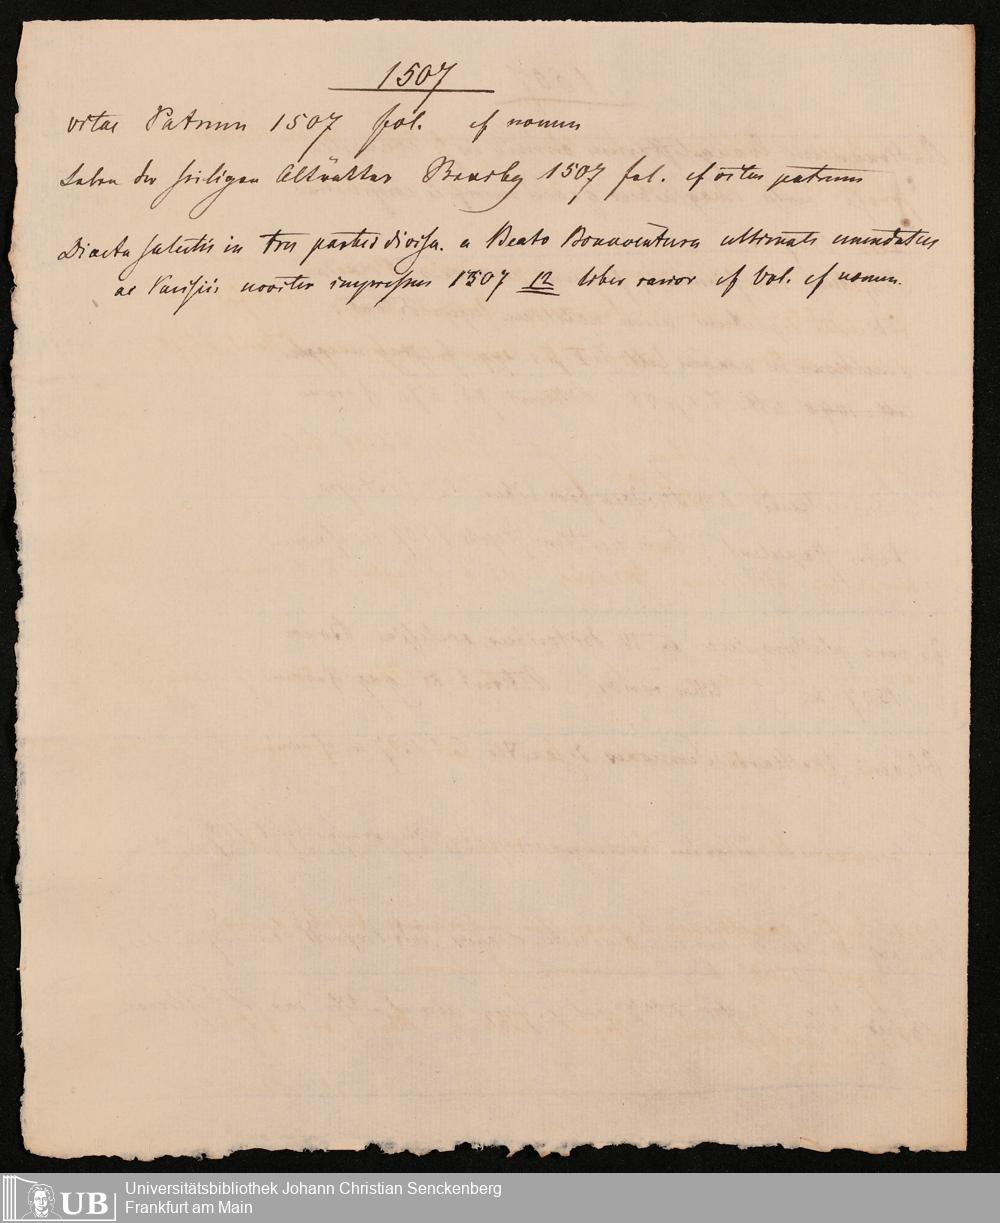 1507
vitae Patrum 1507 fol. cf nomen
Leben der heiligen Altvätter 1507 fol. cf vitas patrum
Diaeta salutis in tres partes divisa. a Beato Bonaventura ultimate emendatus
ac Parisiis noviter impressus 1507 12 liber rarior cf Vol. cf nomen.
UB
Universitätsbibliothek Johann Christian Senckenberg
Frankfurt am Main